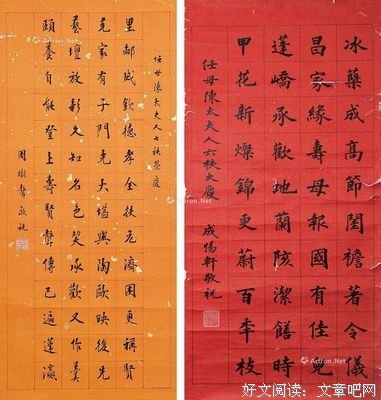 冰蘗成高節閨襜著令儀
昌家緣壽母報國有佳兒
蓬嶠承歡地蘭陔潔饍時
甲花新燦錦更蔚百年枝
任母陳太夫人六秩大慶
成惕軒敬祝
任母陳太夫人七秩榮慶
里鄰咸欽德孝全扶危濟困更稱賢
克家有子門克大堪與陶歐映後先
藝壇放彩久知名色笑承歡又作羹
頤養自能登上壽賢聲傳已遍蓬瀛
周樹聲敬祝
好文阅读：文章吧网